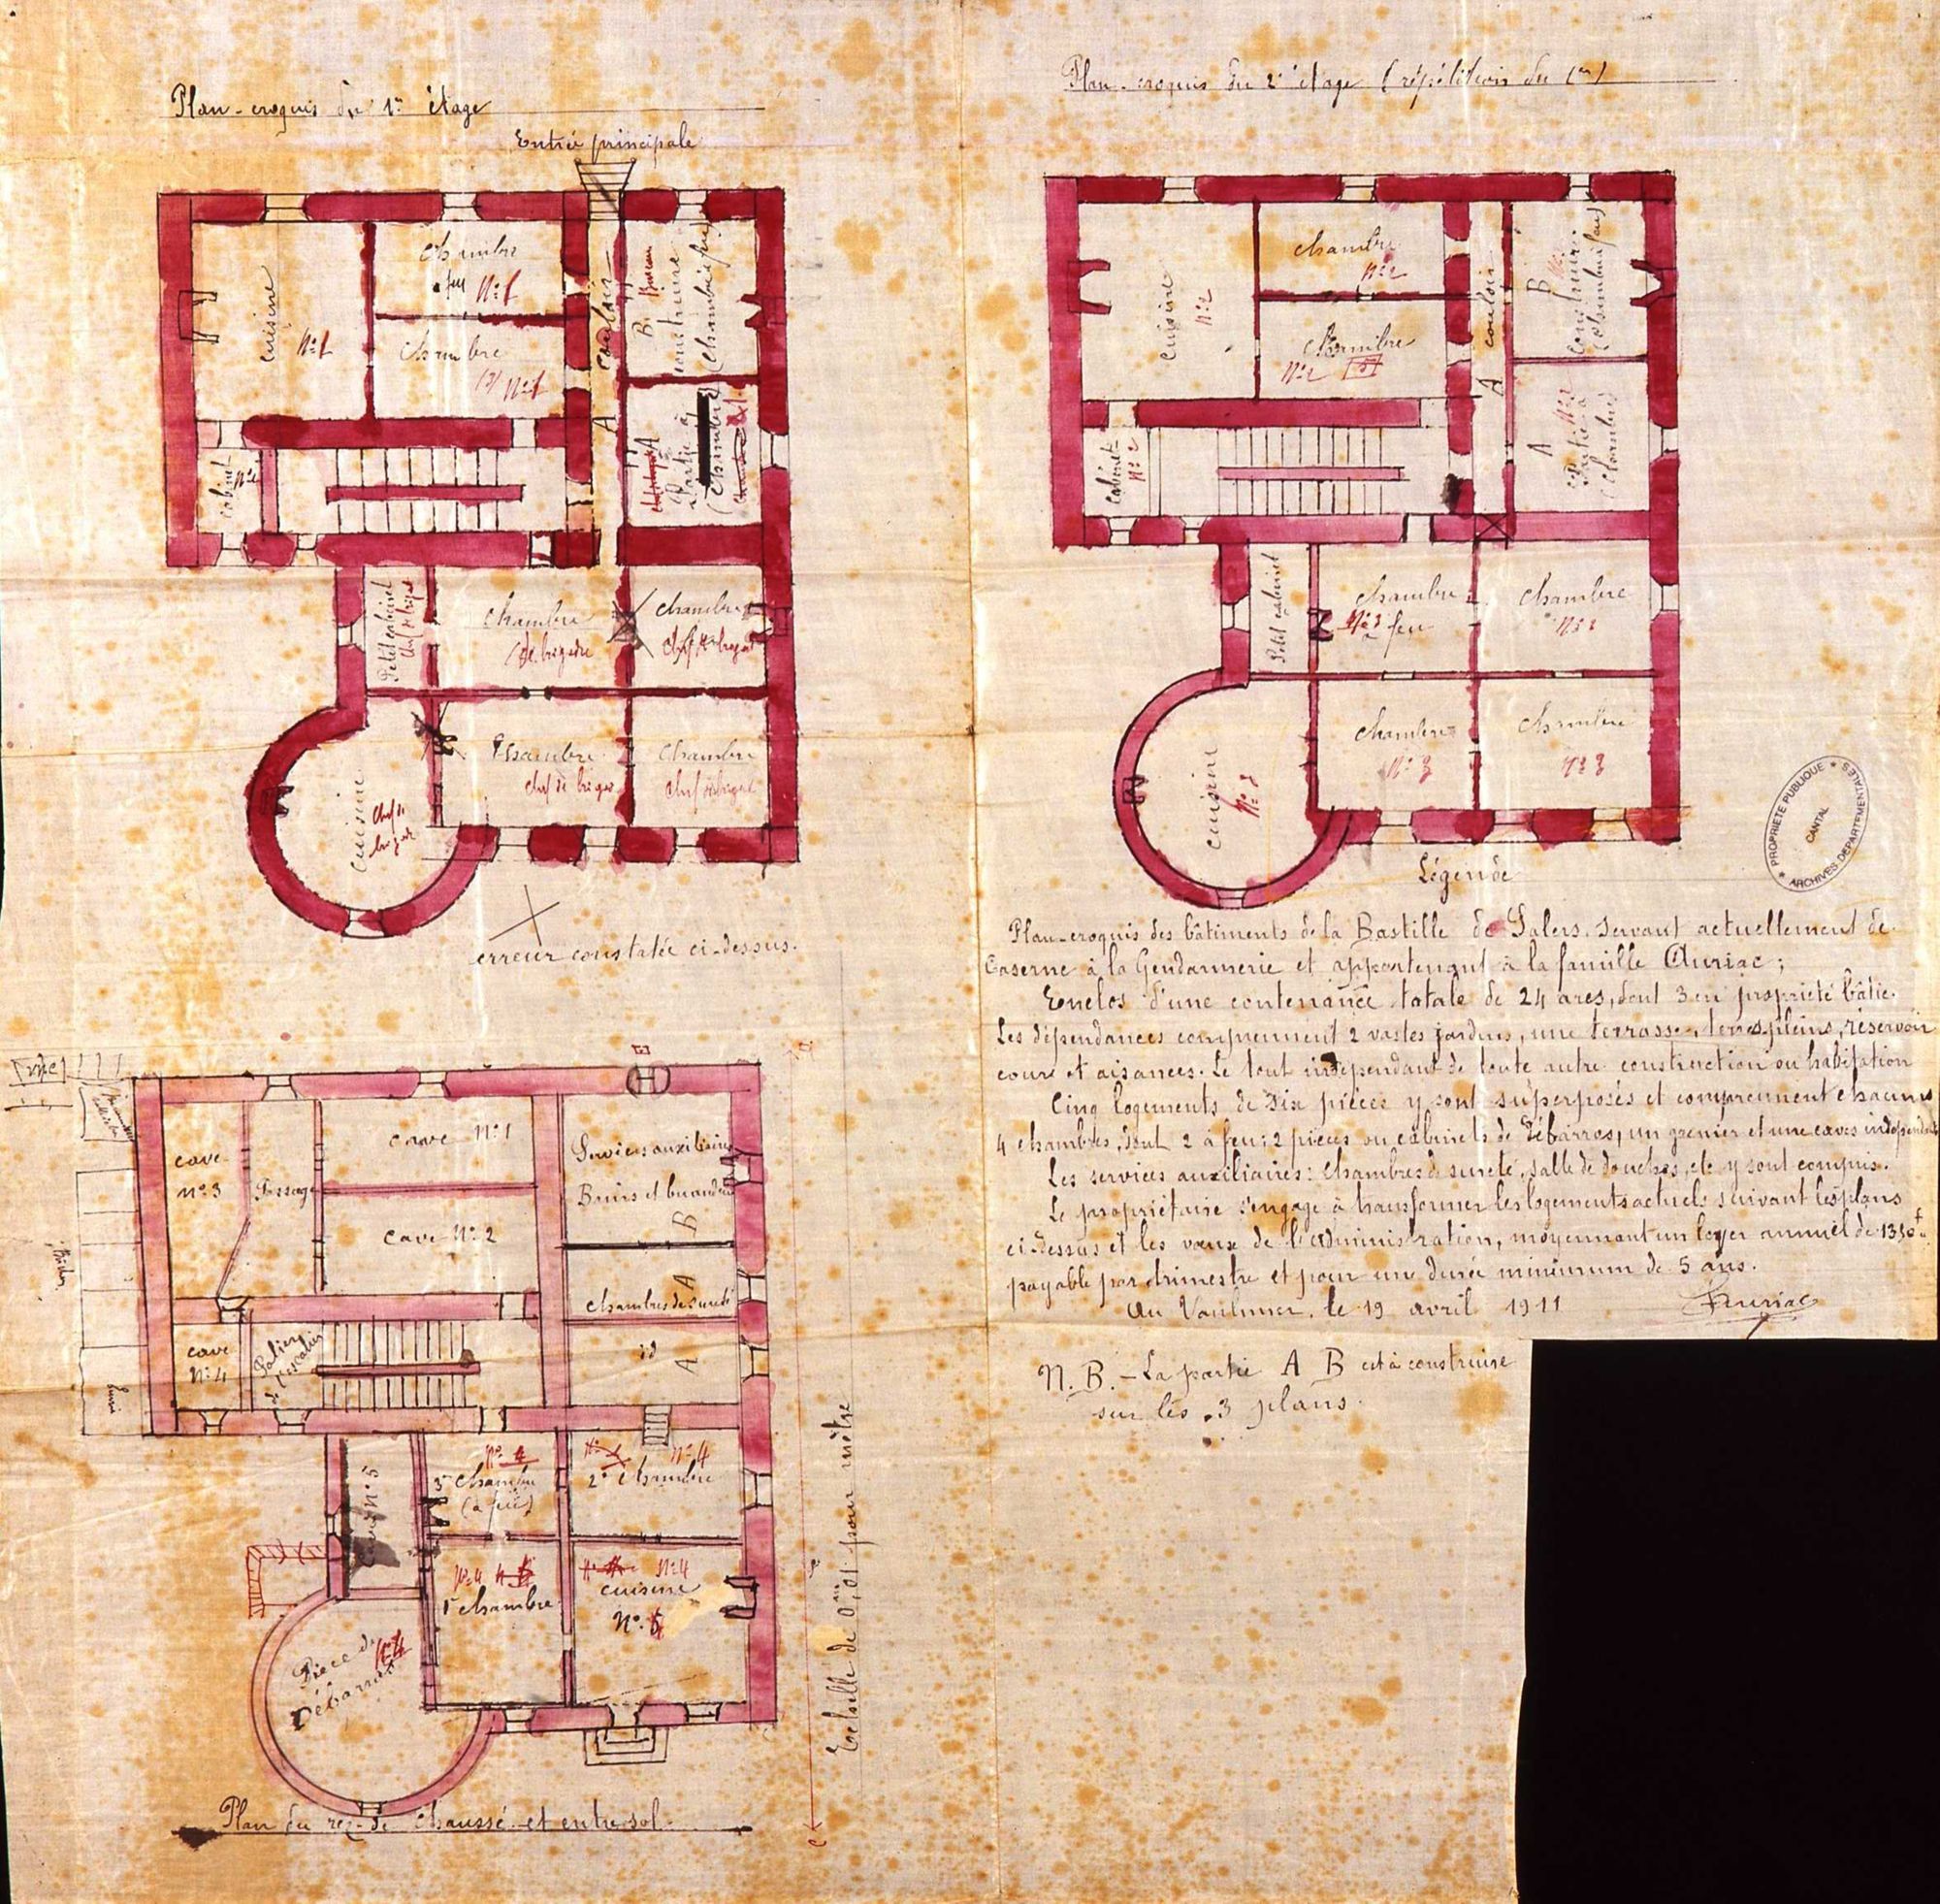 Plan-croquis du 1er étage
Entrée principale
cuisine
N°1
Chambre
à feu N°1
Chambre
(3) N°1
couloir
A
B. Bureau
construire
(Chambre à feu)
A
Partie à
(Chambre)
cabinet
N°1
Petit cabinet
chef de brigade
Chambre
Ch. de brigade
Chambre
Chef de brigade
Chambre
chef de brigade
Chambre
chef de brigade
cuisine
Chef de
brigade
erreur constatée ci-dessus.
Plan-croquis du 2e étage (répétition du 1er)
cuisine
N°2
Chambre
N°2
Chambre
N°2
couloir
A
B
construire
(chambre à feu)
A
Partie à
(Chambre)
cabinet
N°2
Petit cabinet
Chambre
N°3
à feu
Chambre
N°3
Chambre
N°3
Chambre
N°3
cuisine
N°3
PROPRIETE PUBLIQUE
CANTAL
ARCHIVES DEPARTEMENTALES
Légende
Plan-croquis des bâtiments de la Bastille de Salers. Servant actuellement de
Caserne à la Gendarmerie et appartenant à la famille Auriac;
Enclos d'une contenance totale de 24 ares, dont 3 en propriété bâtie.
Les dépendances comprennent 2 vastes jardins, une terrasse, terrespleins, réservoir
cour et aisances. Le tout indépendant de toute autre construction ou habitation
Cinq logements de six pièces y sont superposés et comprennent chacun
4 chambres, dont 2 à feu; 2 pièces ou cabinets de débarras, un grenier et une caves indépendants
Les services auxiliaires: chambres de sureté, salle de douches, etc y sont compris.
Le propriétaire s'engage à transformer les logements actuels suivant les plans
ci-dessus et les vœux de l'administration, moyennant un loyer annuel de 1350f.
payable par trimestre et pour une durée minimum de 5 ans.
Au Vaulmier, le 19 avril 1911
Auriac
N.B. - La partie A B est à construire
sur les 3 plans.
cave
n°3
Passage
cave N°1
cave N°2
Services auxiliaires
Bains et buanderie
B
A
Chambres de sureté
id
A
cave
N°4
Palier
de l'escalier
N°5
N°4
3e Chambre
(à feu)
N°4
2e Chambre
N°4
1e chambre
N°4
cuisine
N°
Pièce de
Débarras
N°4
Echelle de 0m,01 pour mètre
Plan du rez-de chaussé et entresol